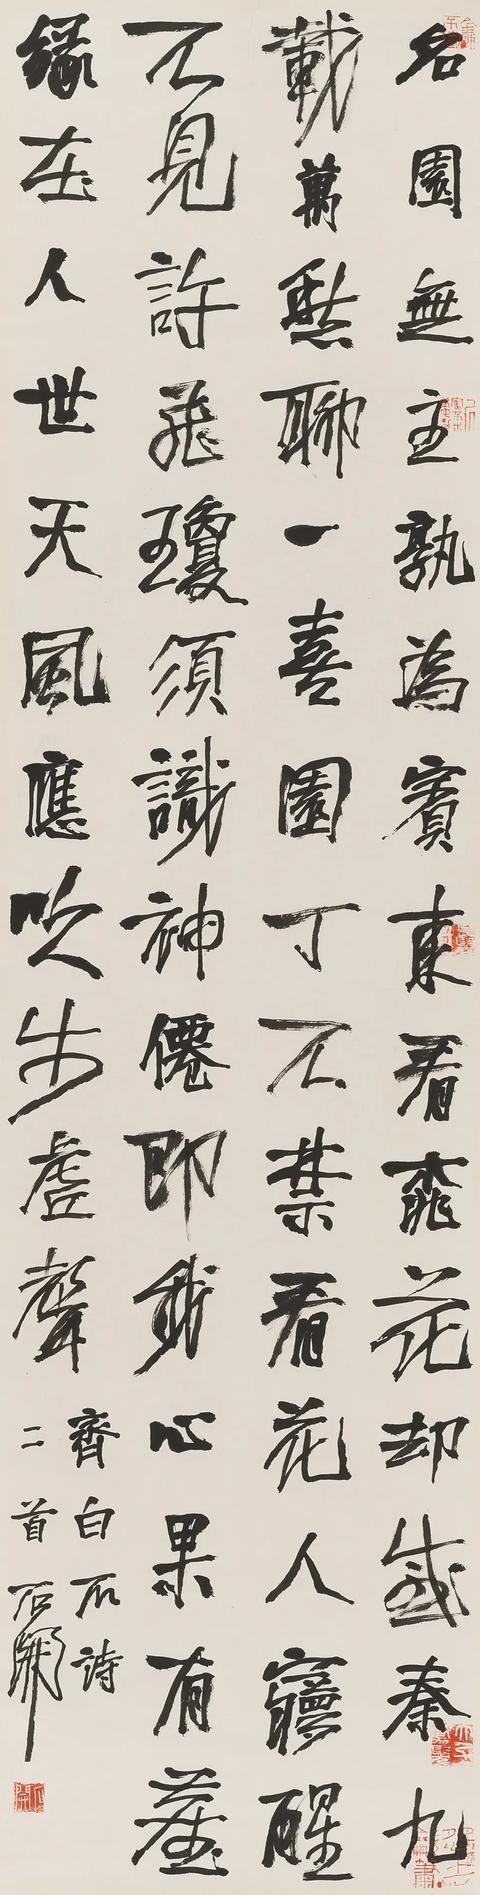 名園無主孰為賓來看桃花却感秦九
載萬愁聊一喜園丁不禁看花人夢醒
不見許飛瓊須識神僊即我心果有塵
緣在人世天風應吹步虛聲
齊白石詩
二首石開